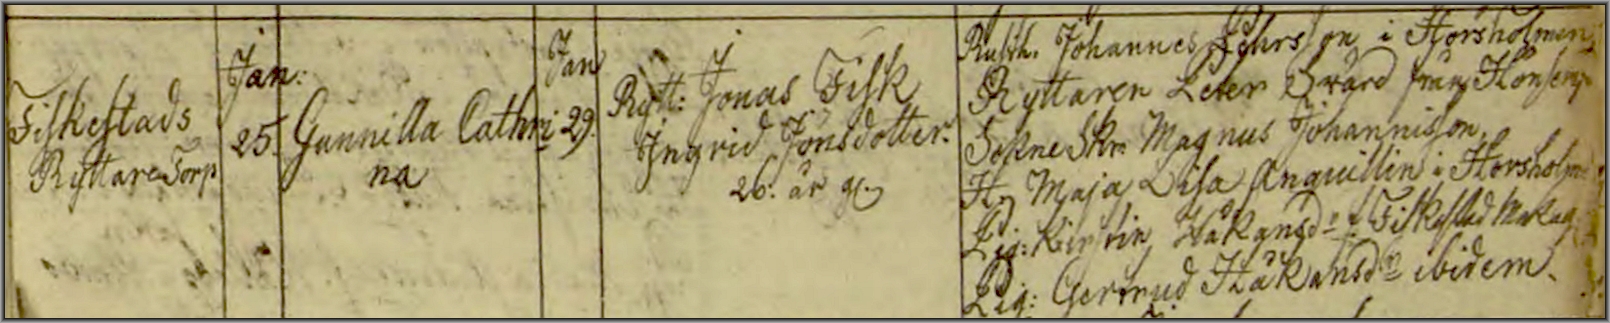 Fiskestads
Ryttare Torp
Jan:
25.
Gunnilla Cathri
na
Jan
29.
Rytt: Jonas Fisk
Ingrid Jonsdotter.
26. år gl.
Rusth. Johannes Pehrsson i Horsholmen
Ryttaren Peter Svärd från
Sokne Skr. Magnus Johannisson.
H. Maja Lisa Anquillin i Horsholm
Pig: Kirstin Håkansdr f. Fiskestad
Pig: Gertrud Håkansdr ibidem.